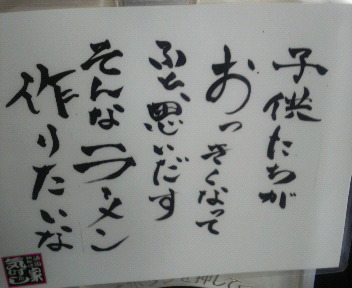 子供たちが
おっきくなって
ふと、思いだす
そんなラーメン
作りたいな